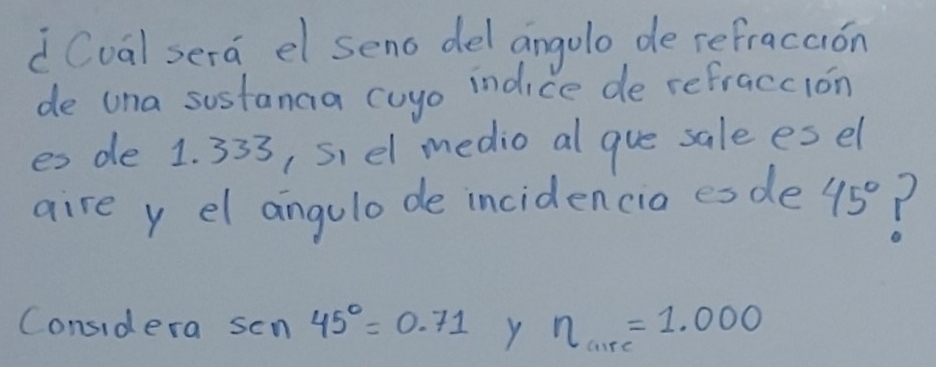 ¿Cuál será el seno del ángulo de refracción
de una sustancia cuyo índice de refracción
es de 1.333, si el medio al que sale es el
aire y el ángulo de incidencia es de 45°?
Considera sen 45° = 0.71 y n aire = 1.000